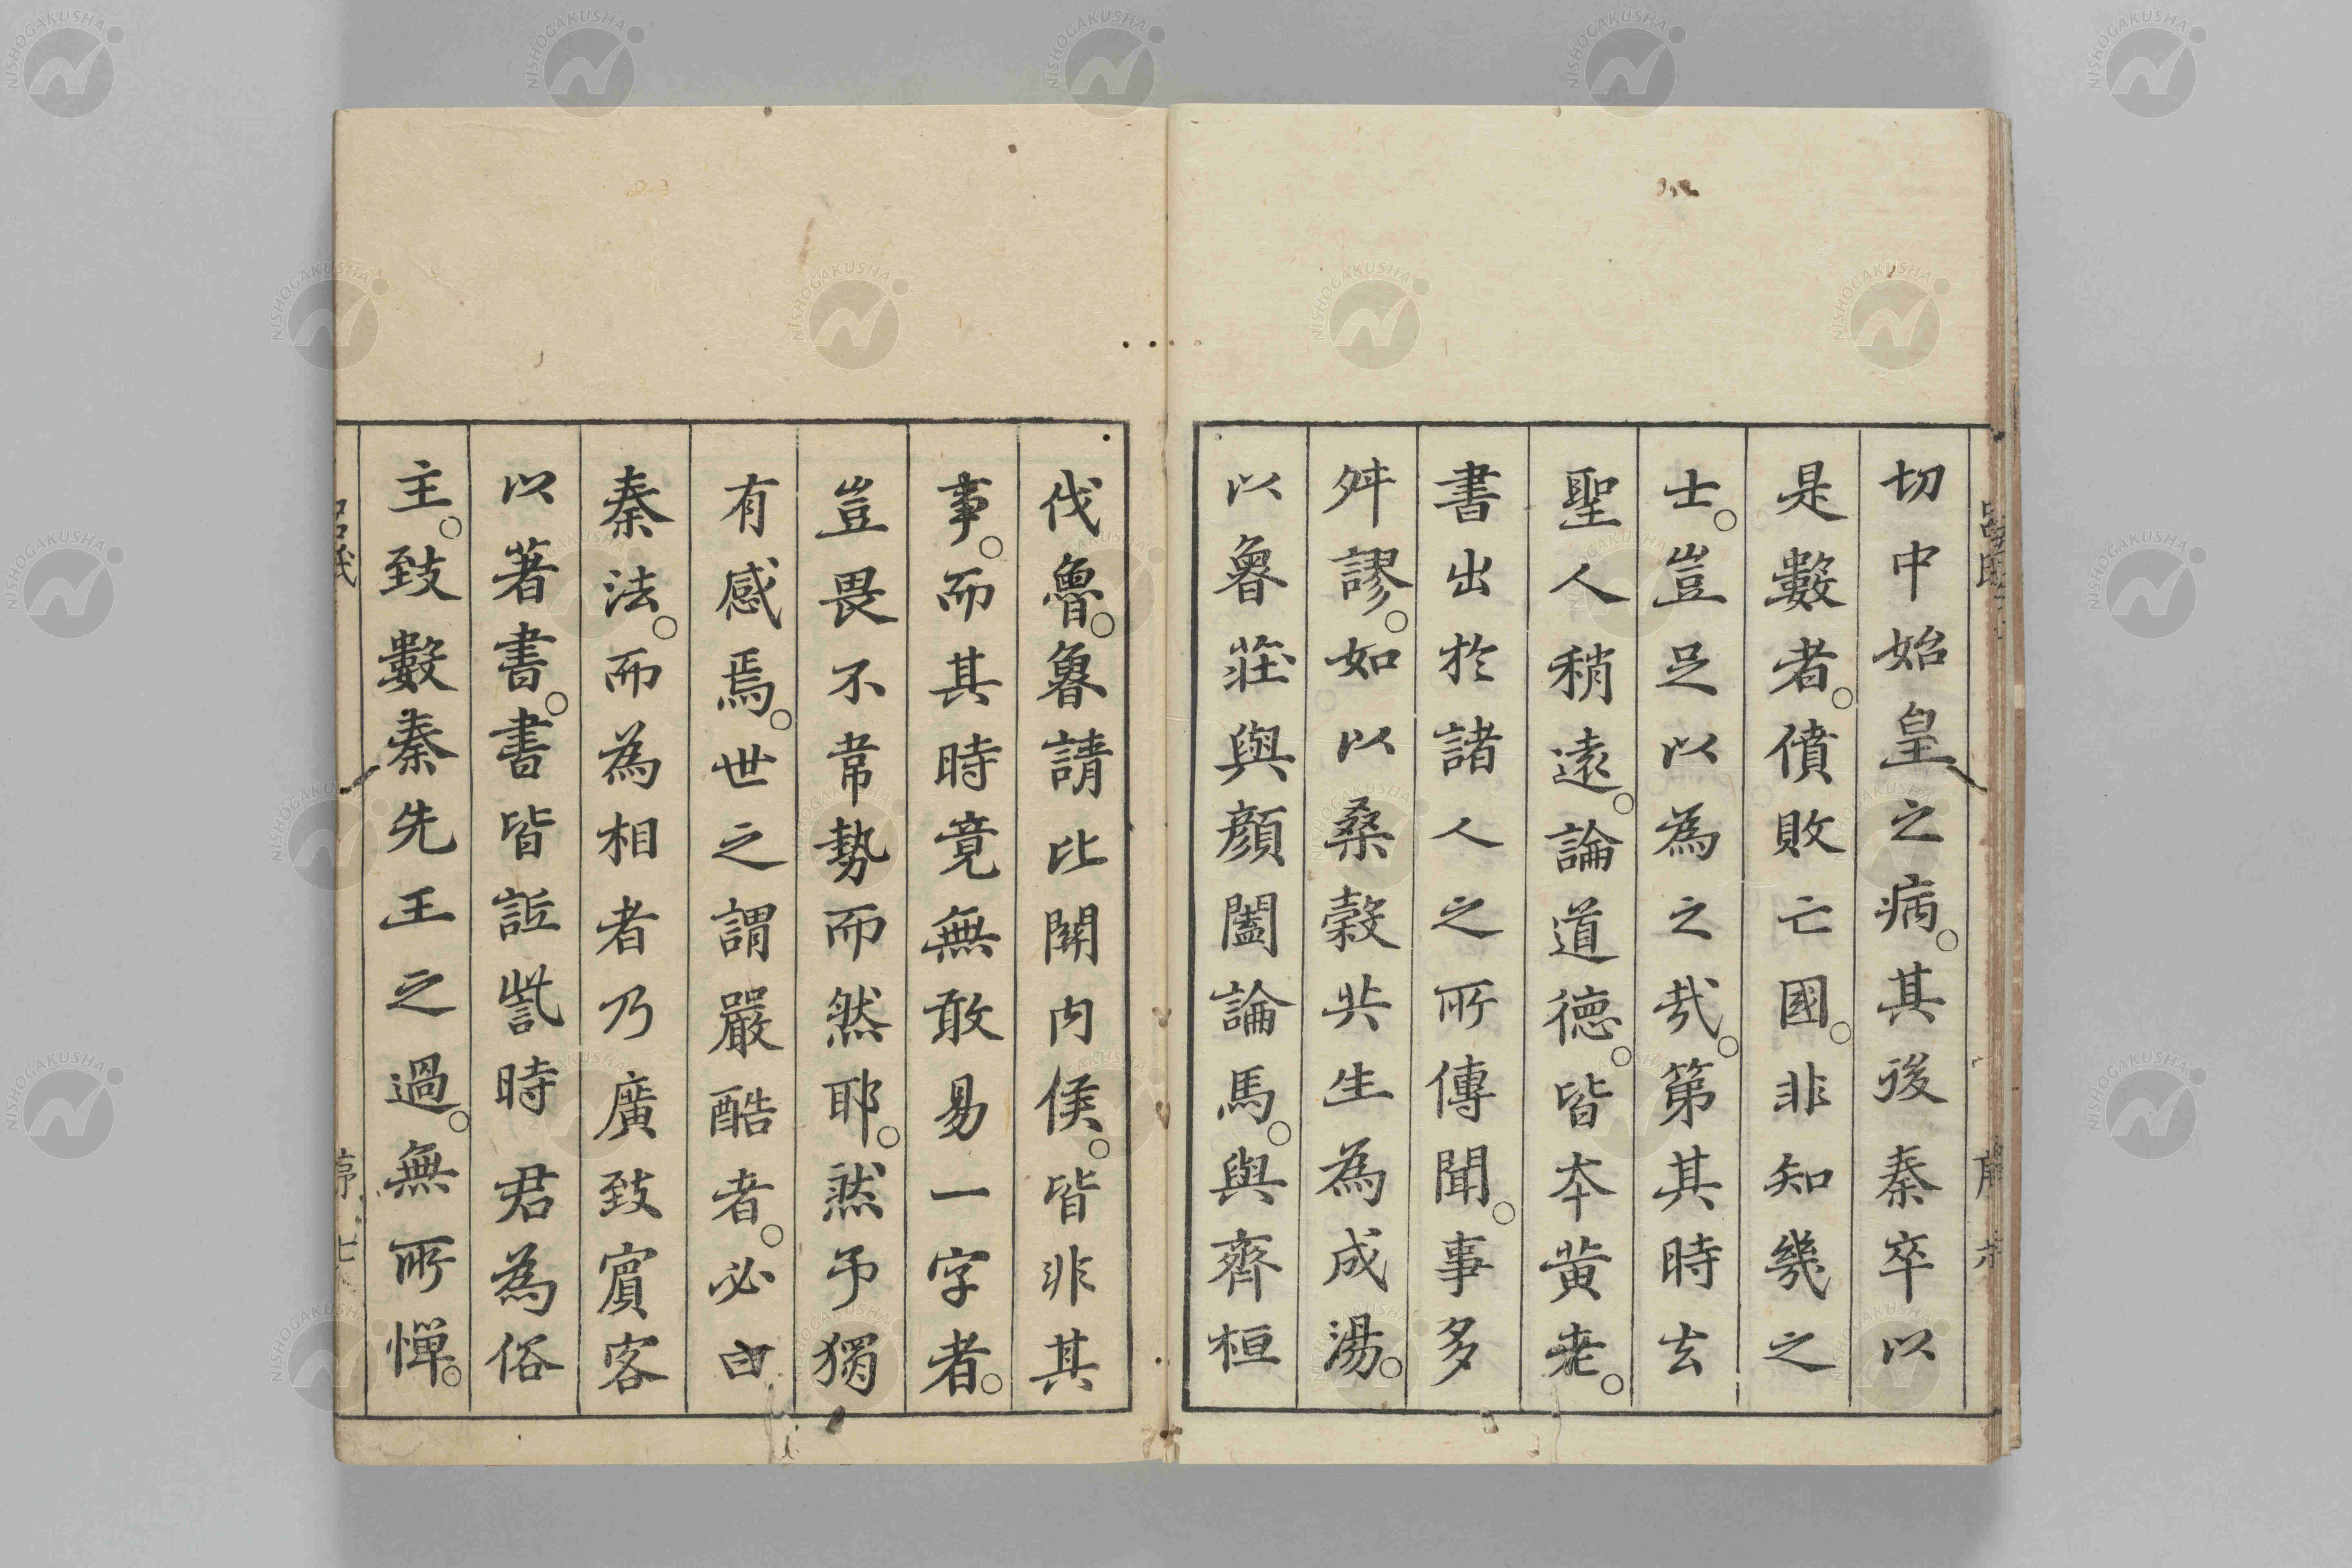 切中始皇之病。其後秦卒以
是數者。僨敗亡國。非知幾之
士。豈足以為之哉。第其時去
聖人稍遠。論道德。皆本黃老。
書出於諸人之所傳聞。事多
舛謬。如以桑穀共生為成湯。
以魯莊與顏闔論馬。與齊桓
伐魯。魯請比關內侯。皆非其
事。而其時竟無敢易一字者。
豈畏不韋勢而然耶。然予獨
有感焉。世之謂嚴酷者。必曰
秦法。而為相者乃廣致賓客
以著書。書皆詆訾時君為俗
主。致數秦先王之過。無所憚。
序 七
NISHOGAKUSHA